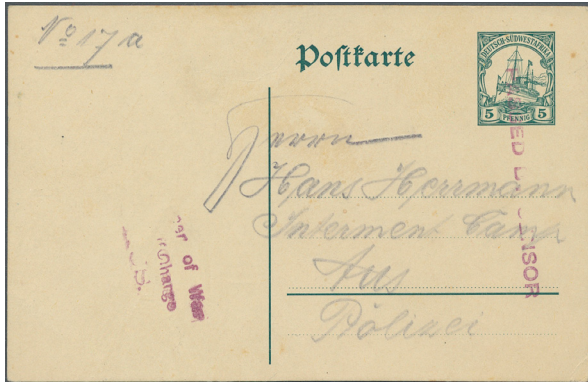 No 17 a
Postkarte
DEUTSCH-SÜDWESTAFRIKA
5 PFENNIG 5
Herrn
Hans Herrmann
Interment Camp
Aus
Polizei
of War
Charge